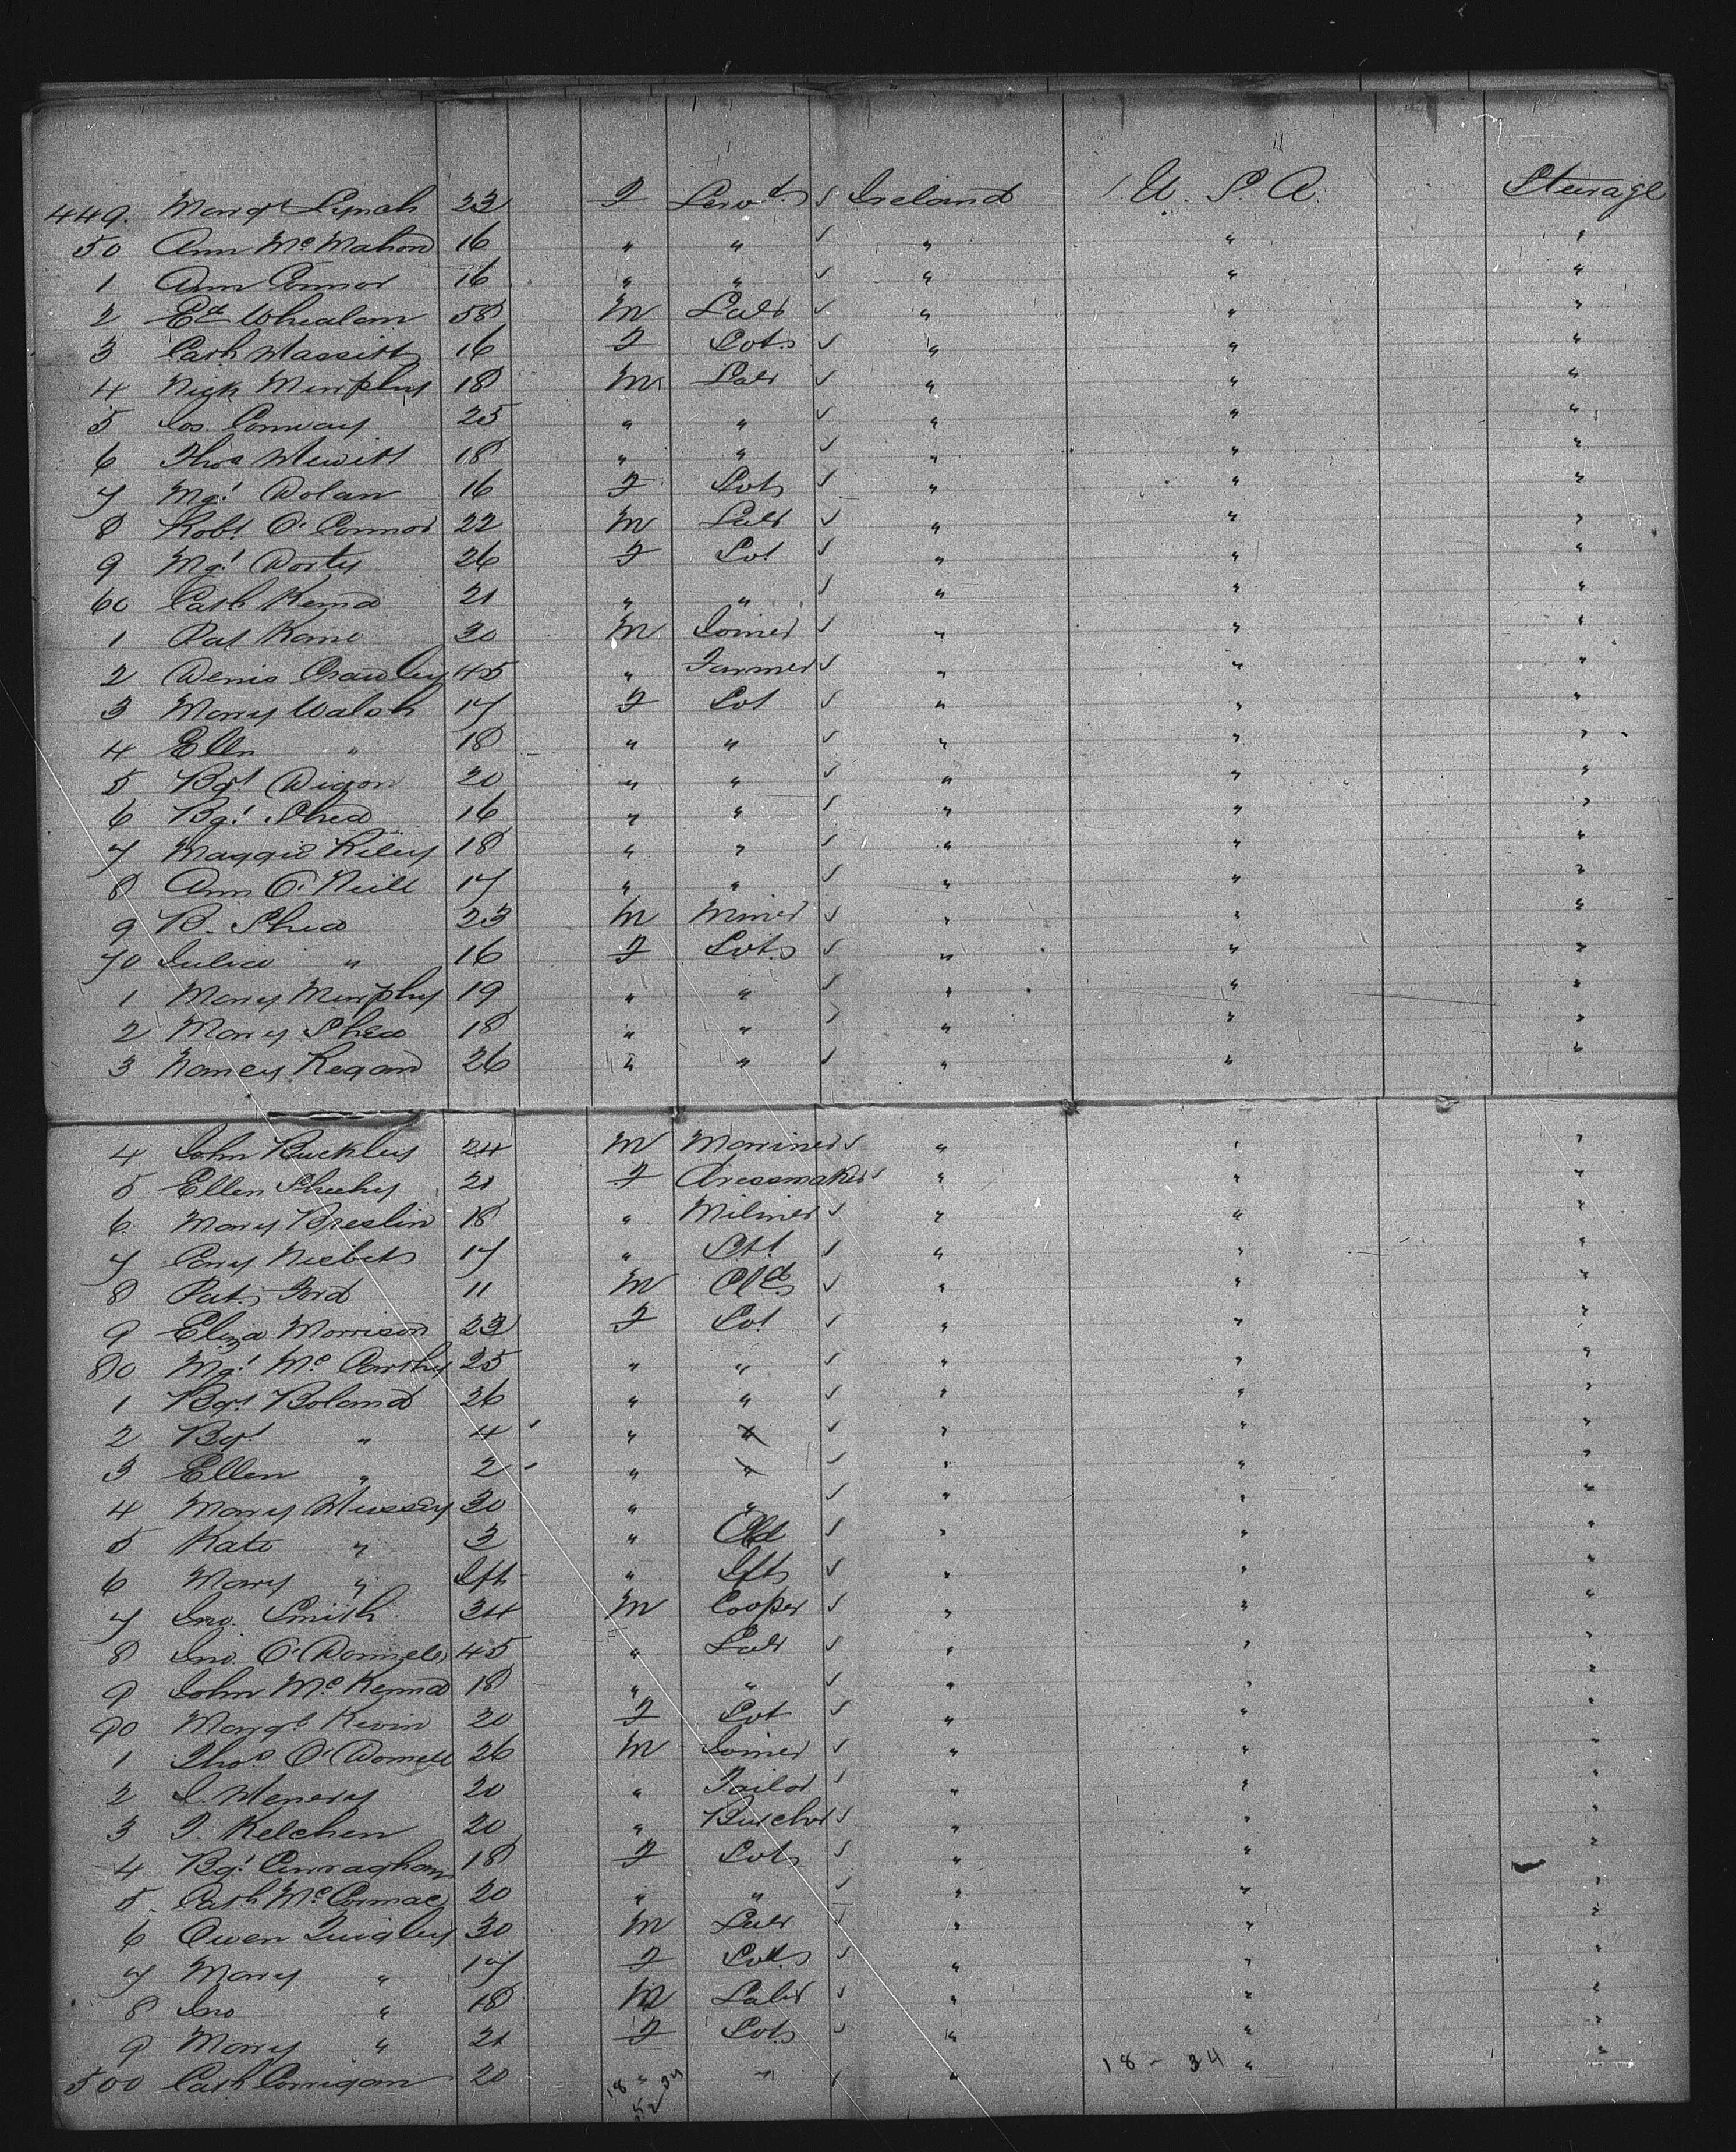 449. Margt Lynch 23 F Servt ✓ Ireland U.S.A. Steerage
50 Ann McMahon 16 " " ✓ " " "
1 Ann Connor 16 " " ✓ " " "
2 Ed Whealan 58 M Labr ✓ " " "
3 Cath Hassitt 16 F Svt ✓ " " "
4 Nick Murphy 18 M Labr ✓ " " "
5 Jos. Conway 25 " " ✓ " " "
6 Thos Hewitt 18 " " ✓ " " "
7 Mgt Dolan 16 F Svt ✓ " " "
8 Robt O'Connor 22 M Labr ✓ " " "
9 Mgt Dorty 26 F Svt ✓ " " "
60 Cath Kena 21 " " ✓ " " "
1 Pat Kane 30 M Joiner ✓ " " "
2 Denis Crawley 45 " Farmer ✓ " " "
3 Mary Walsh 17 F Svt ✓ " " "
4 Ellen " 18 " " ✓ " " "
5 Bgt Digon 20 " " ✓ " " "
6 Bgt Shea 16 " " ✓ " " "
7 Maggie Riley 18 " " ✓ " " "
8 Ann O'Neill 17 " " ✓ " " "
9 B. Shea 23 M Miner ✓ " " "
70 Julia " 16 F Svt ✓ " " "
1 Mary Murphy 19 " " ✓ " " "
2 Mary Shea 18 " " ✓ " " "
3 Nancy Regan 26 " " ✓ " " "
4 John Buckley 24 M Mariner ✓ " " "
5 Ellen Sheehy 21 F Dressmaker ✓ " " "
6 Mary Breslin 18 " Miliner ✓ " " "
7 Cary Niebits 17 " Svt ✓ " " "
8 Pat. Ford 11 M Cld ✓ " " "
9 Eliza Morrison 23 F Svt ✓ " " "
80 Mgt McCarthy 25 " " ✓ " " "
1 Bgt Boland 26 " " ✓ " " "
2 Bgt " 4 " " ✓ " " "
3 Ellen " 2 " " ✓ " " "
4 Mary Hussey 30 " " ✓ " " "
5 Kate " 3 " Cld ✓ " " "
6 Mary " Ift " Ift ✓ " " "
7 Jno. Smith 34 M Cooper ✓ " " "
8 Jno. O'Donnell 45 " Labr ✓ " " "
9 John McKenna 18 " " ✓ " " "
90 Margt Kevin 20 F Svt ✓ " " "
1 Thos O'Donnell 26 M Joiner ✓ " " "
2 J. Henery 20 " Tailor ✓ " " "
3 J. Kelchen 20 " Butcher ✓ " " "
4 Bgt Curraghan 18 F Svt ✓ " " "
5 Cath McCormac 20 " " ✓ " " "
6 Owen Quigley 30 M Labr ✓ " " "
7 Mary " 17 F Svt ✓ " " "
8 Jno " 18 M Labr ✓ " " "
9 Mary " 21 F Svt ✓ " " "
500 Cath Corrigan 20 " " ✓ " " "
18 - 34
18 34
52